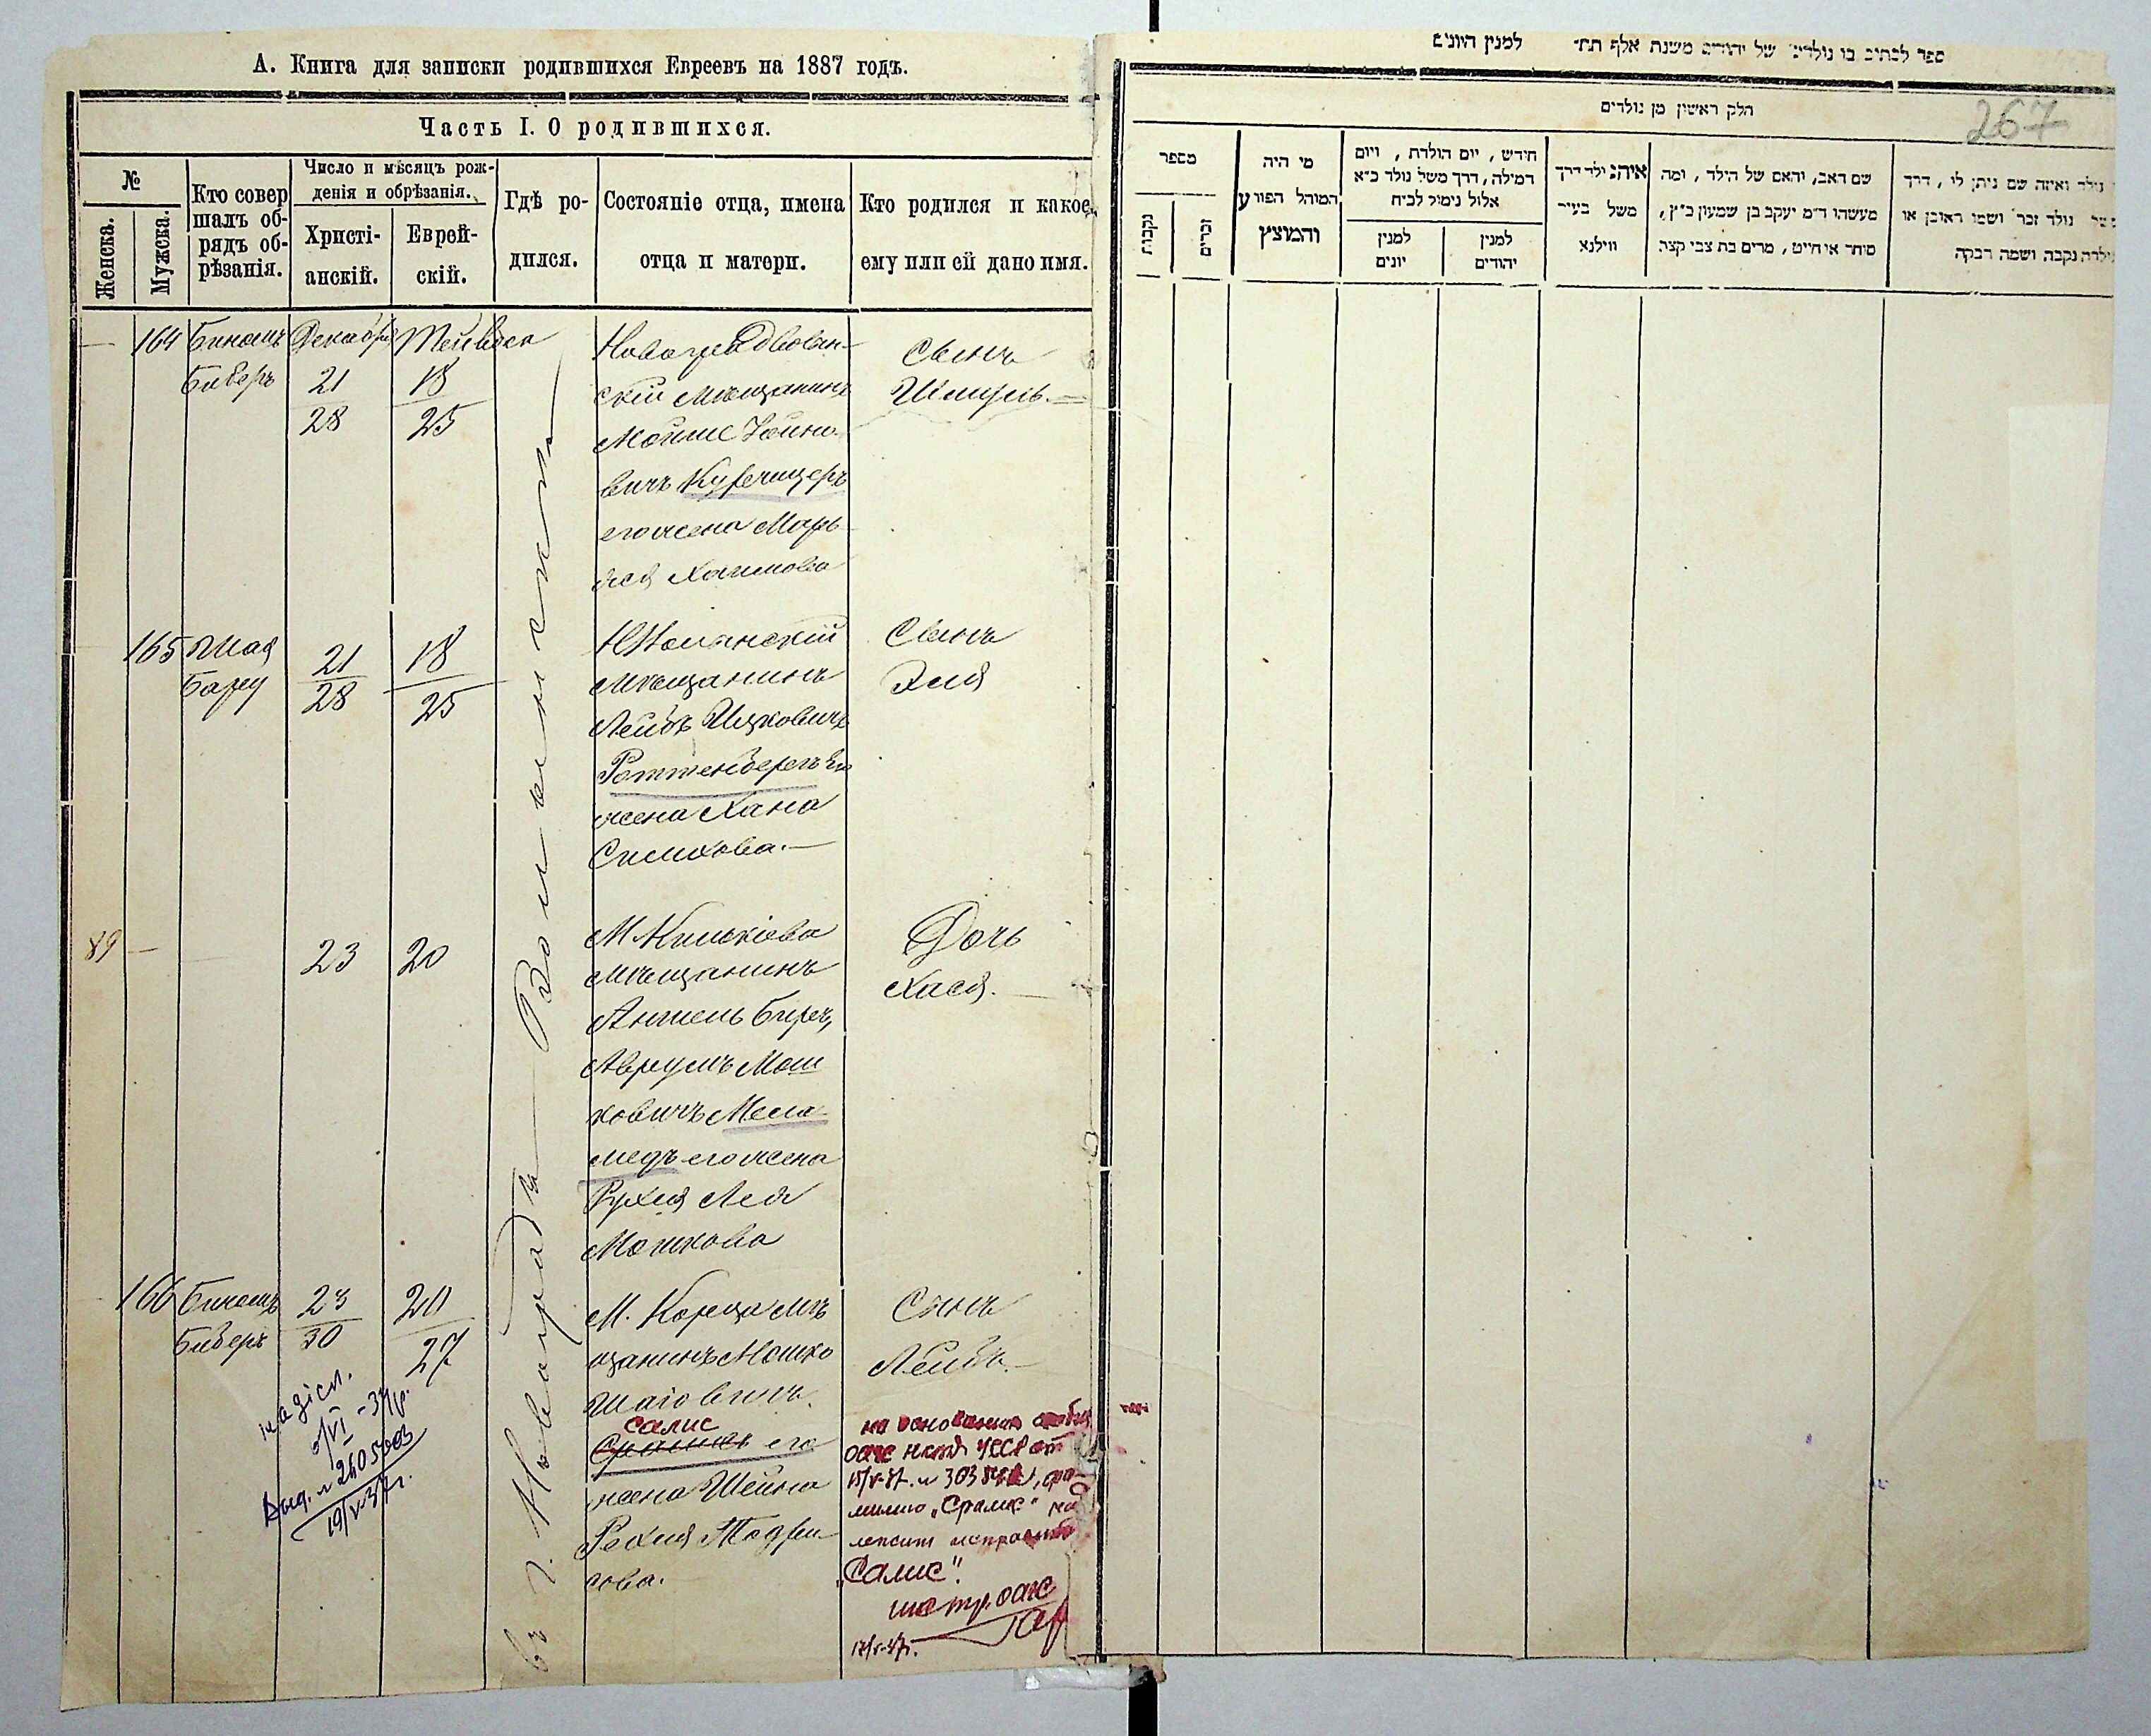 А. Книга для записки родившихся Евреевъ на 1887 годъ.
Часть I. О родившихся.
№
Женска.
Мужска.
Кто совер
шалъ об-
рядъ об-
рѣзанія.
Число и мѣсяцъ рож-
денія и обрѣзанія.
Христі-
анскій.
Еврей-
скій.
Гдѣ ро-
дился.
Состояніе отца, имена
отца и матери.
Кто родился и какое
ему или ей дано имя.
въ г. Новоградъ Волынскѣ
— 164 Биномъ Декабря Тейвеса
Биберъ 21 18
28 25
Новоградволын-
скій мѣщанинъ
Мойше
вичъ
его жена Марь
яся Хаимова
Сынъ
Шмуль.—
165 Шая 21 18
Барец 28 25
мѣщанинъ
Лейбъ Ицковичъ
Роттенбергъ его
жена Хана
Симхова.—
Сынъ
Эля
89 — 23 20
М.
мѣщанинъ
Аншель Берг,
Аврумъ Мош
ковичъ Мела-
медъ его жена
Рухля Лея
Мошкова
Дочь
Хася.—
166 Биномъ 23 20
Биберъ 30 27
М. Кореца мѣ
щанинъ Мошко
Шаіовичъ
Салис
его
жена Шейна
Рехля Тодри
сова.
Сынъ
Лейбъ.—
надісл.
VI - 37 р.
Выд. № 240
19/V-37 г.
на основании
оагс НКВД УССР от
15/V-37. № 303
милию „Сралис"
лежит исправить
„Салис".
инстр. оагс
17/V-37г.
ספר לכתוב בו נולדים של יהודים משנת אלף תת״ למנין היונים
267
חלק ראשון מן נולדים
מספר
נקבות
זכרים
מי היה
המוהל הפורע
והמוצץ
חודש, יום הולדת, ויום
המילה, דרך משל נולד כ״א
אלול נימול לכ״ח
למנין
יונים
למנין
יהודים
איהנ ילד דרך
משל בעיר
ווילנא
שם האב, והאם של הילד, ומה
מעשהו ד״מ יעקב בן שמעון כ״ץ,
סוחר או חייט, מרים בת צבי קצב
נולד ואיזה שם ניתן לו, דרך
נולד זכר ושמו ראובן או
ילדה נקבה ושמה רבקה